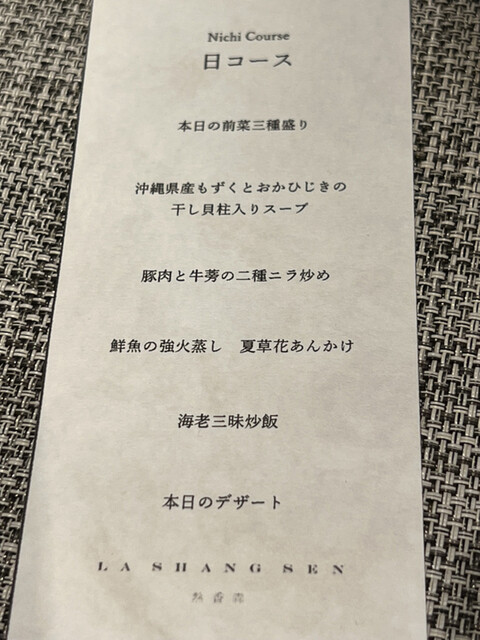 Nichi Course
日コース
本日の前菜三種盛り
沖縄県産もずくとおかひじきの
干し貝柱入りスープ
豚肉と牛蒡の二種ニラ炒め
鮮魚の強火蒸し　夏草花あんかけ
海老三昧炒飯
本日のデザート
LA SHANG SEN
熱香森